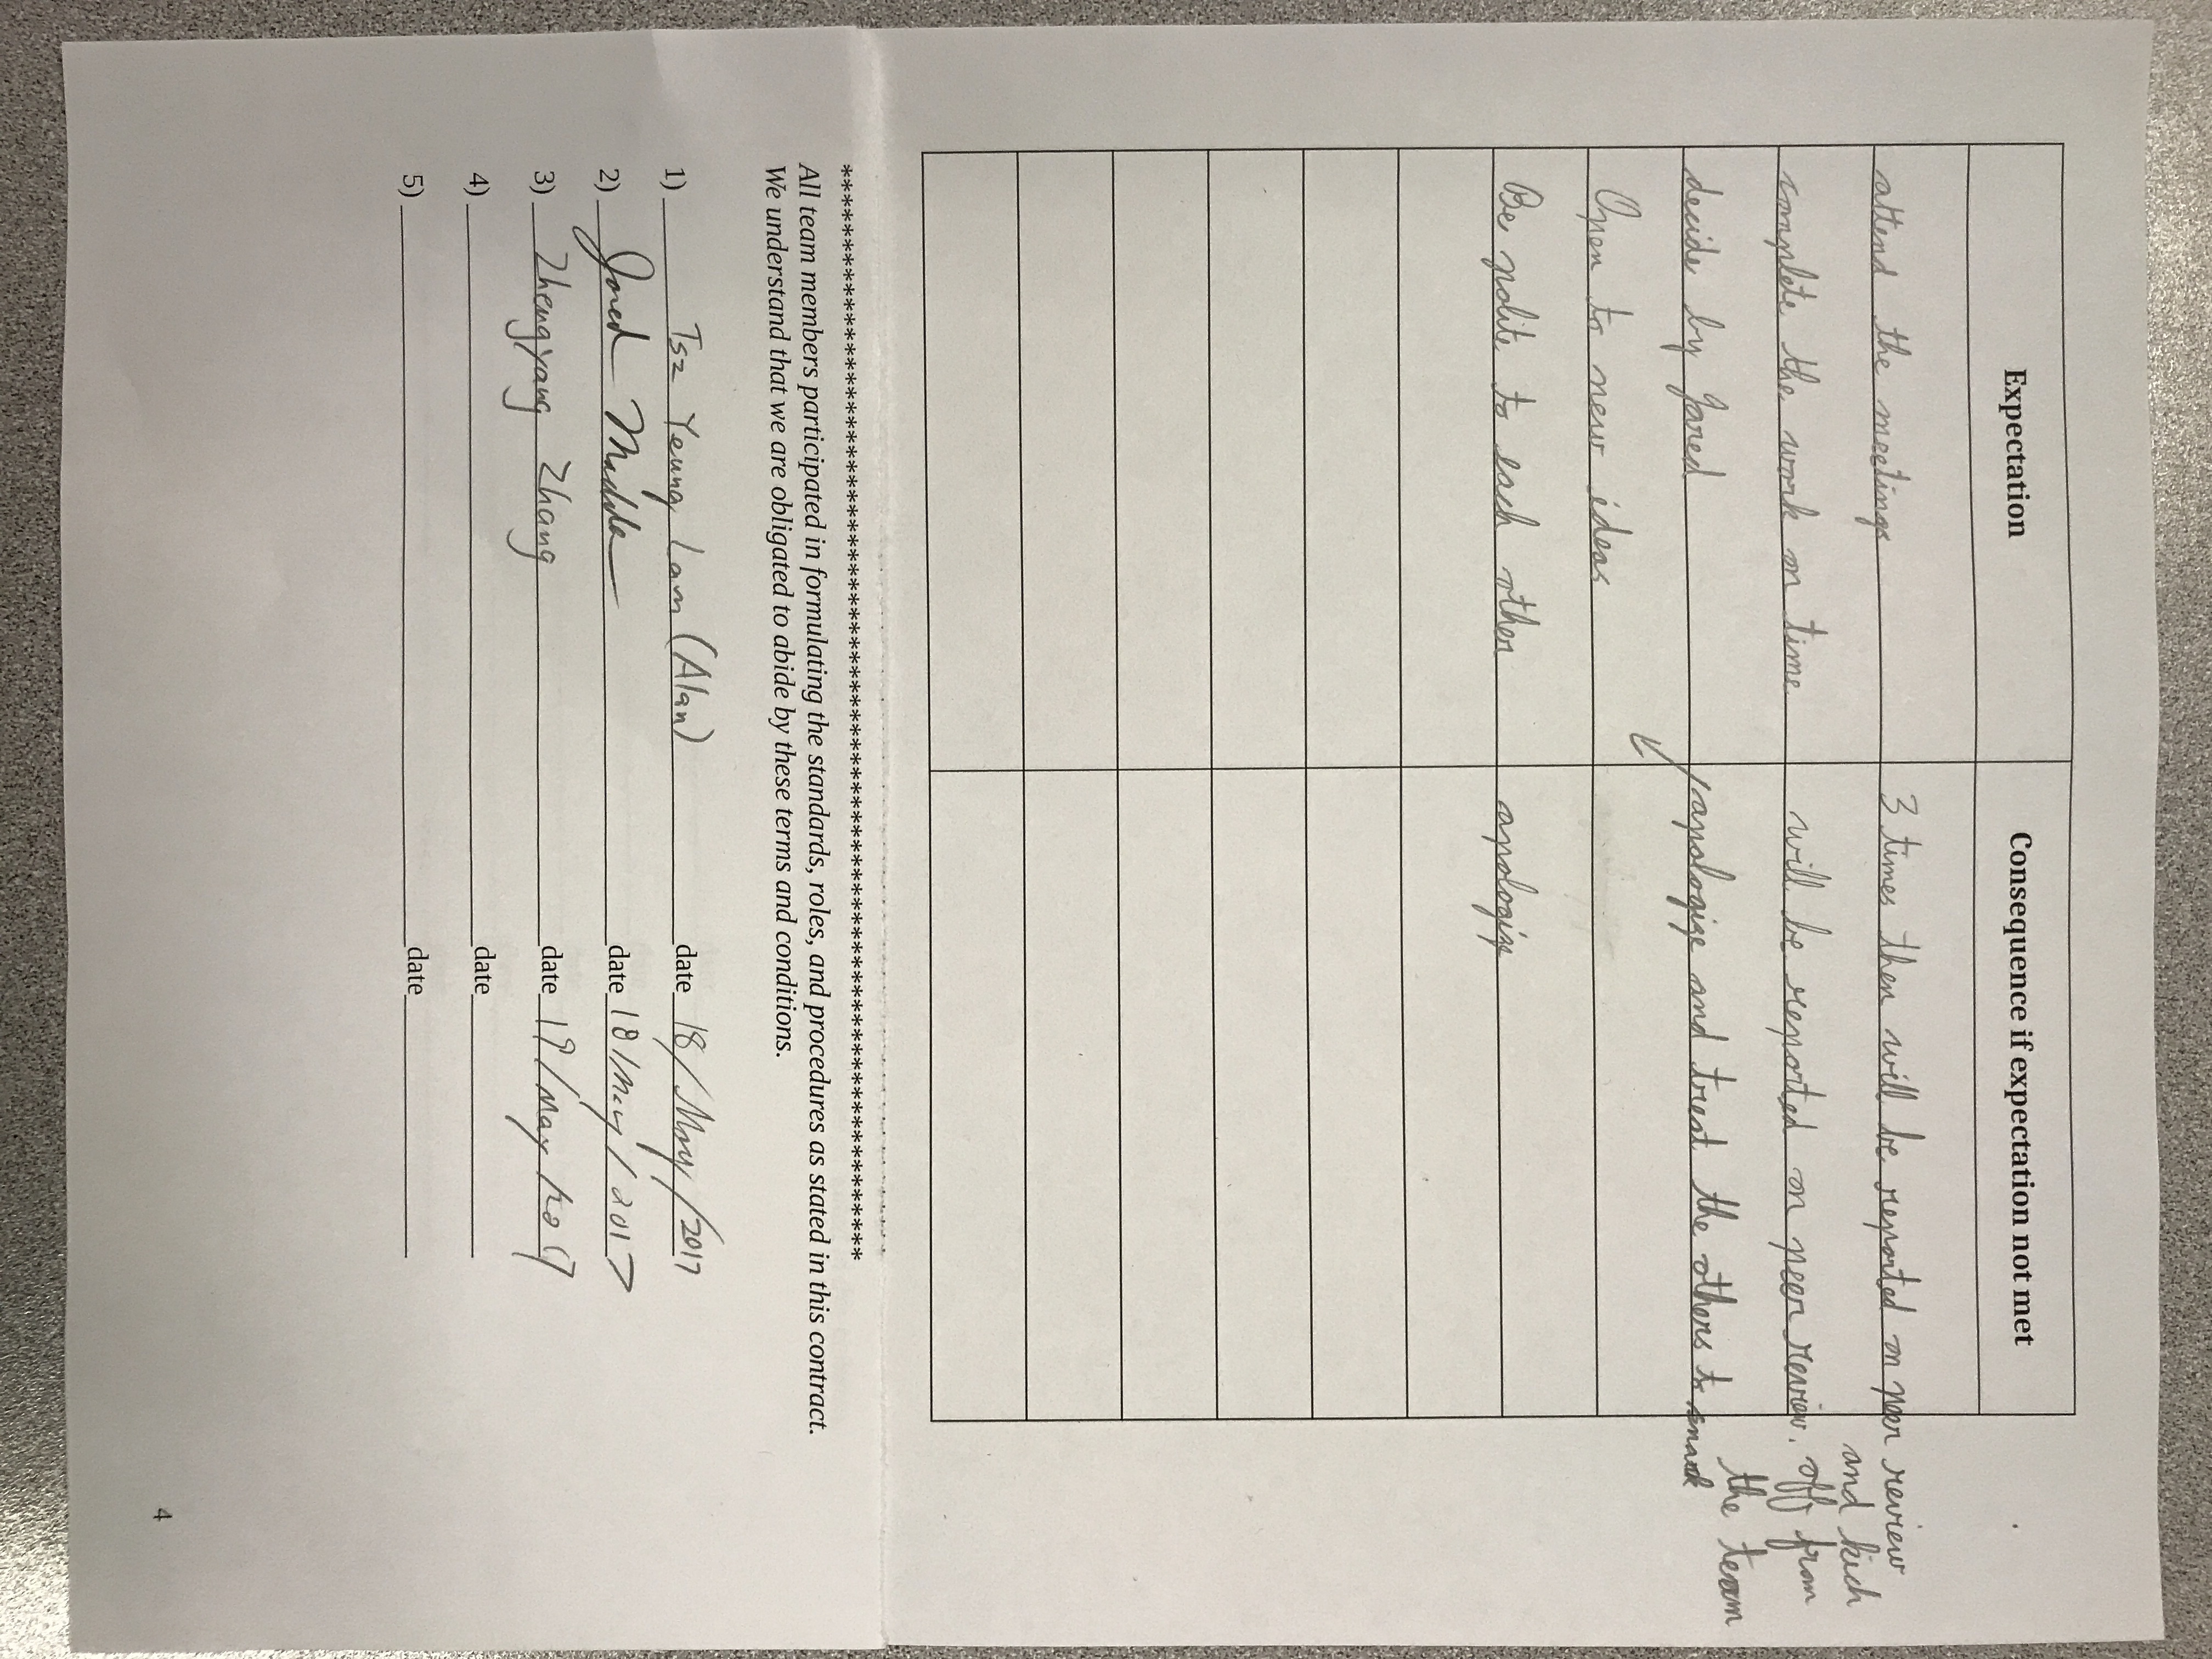 Expectation Consequence if expectation not met
attend the meetings 3 times then will be reported on peer review
and kich
complete the work on time will be reported on peer review. off from
the team
decide by Jared apologize and treat the others to snack
Open to new ideas
Be polite to each other apologize
******************************************************************************
All team members participated in formulating the standards, roles, and procedures as stated in this contract.
We understand that we are obligated to abide by these terms and conditions.
1) Tsz Yeung Lam (Alan) date 18/May/2017
2) Jared date 18/May/2017
3) Zhengyang Zhang date 19/May/2017
4) date
5) date
4